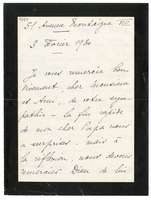 51 Avenue Montaigne VIII
3 Février 1930
Je vous remercie bien
vivement, cher Monsieur
et Ami, de votre sympa-
thie – la fin rapide
de mon cher Papa nous
a surprises – mais à
la réflexion, nous devons
remercier Dieu de lui